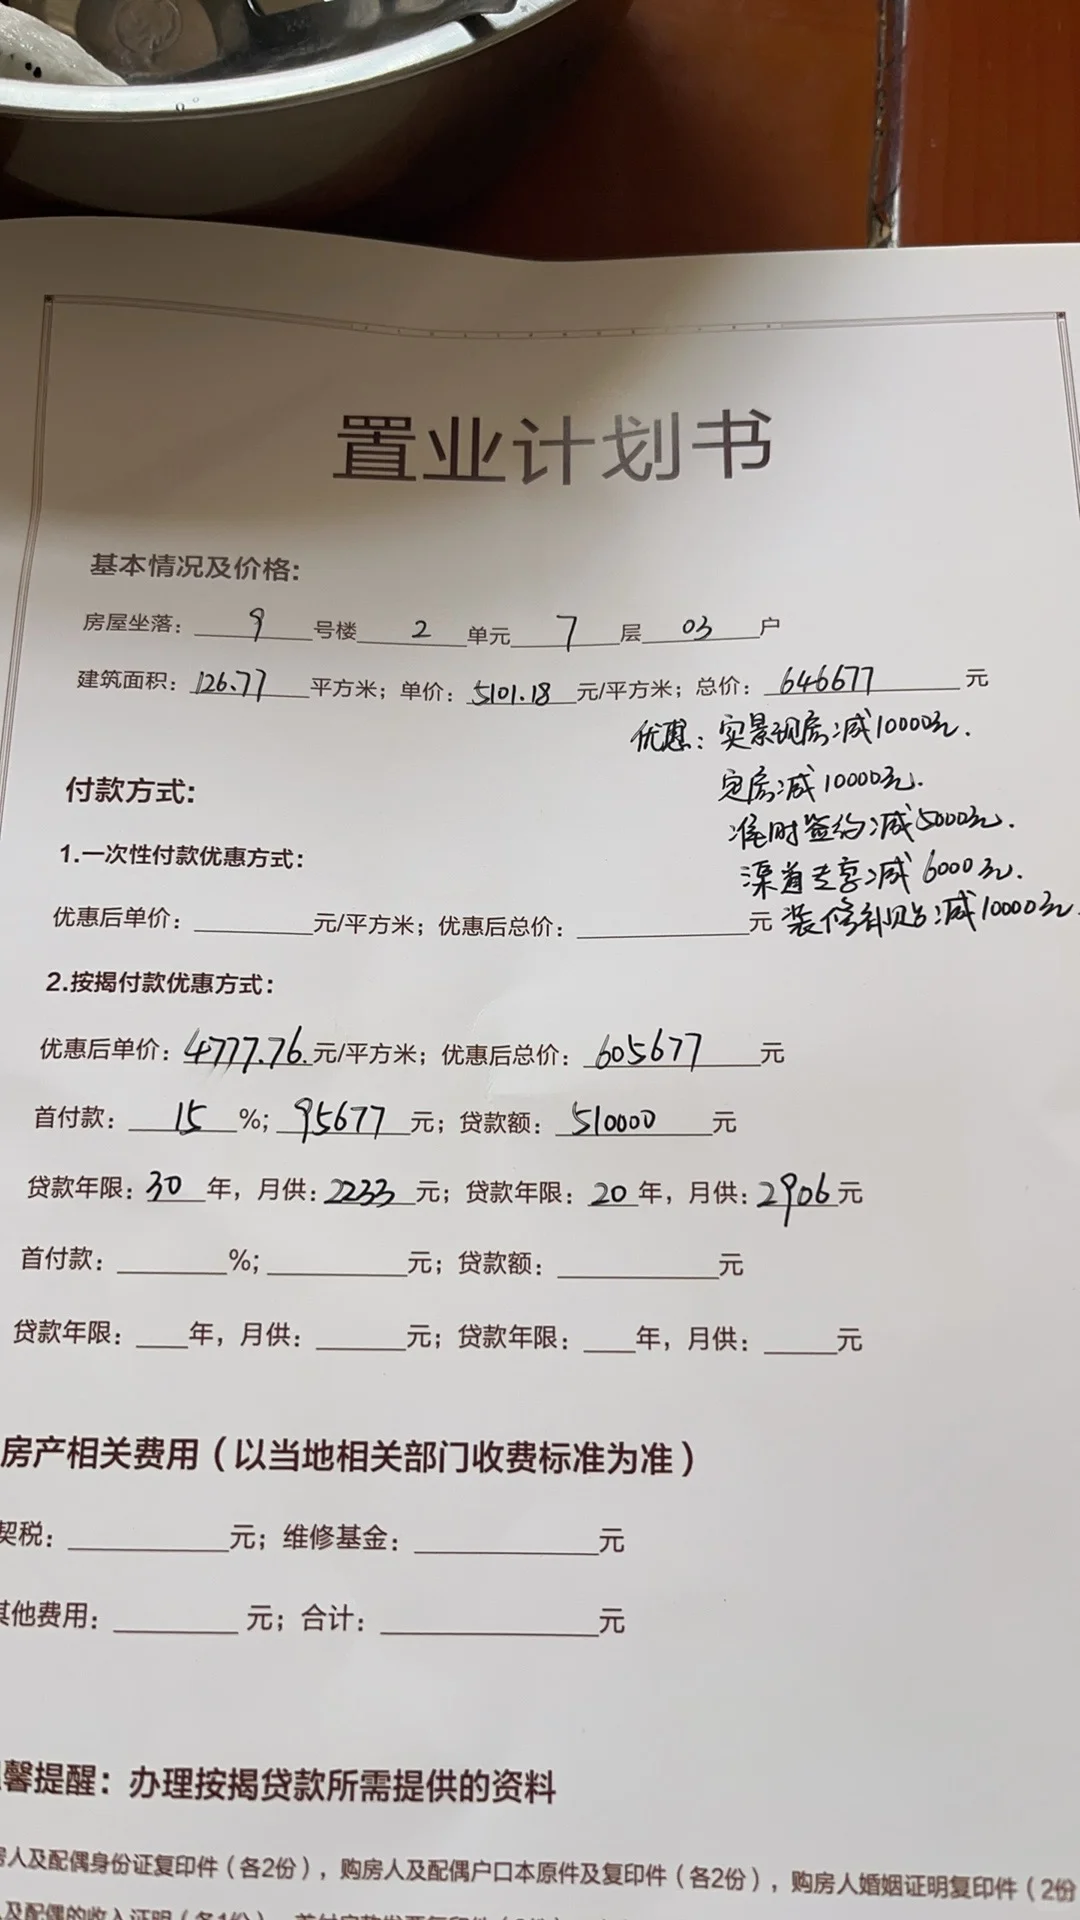 置业计划书
基本情况及价格:
房屋坐落: 9 号楼 2 单元 7 层 03 户
建筑面积: 126.77 平方米; 单价: 5101.18 元/平方米; 总价: 646677 元
优惠: 实景现房减10000元.
定房减10000元.
准时签约减5000元.
渠道专享减6000元.
装修补贴减10000元.
付款方式:
1.一次性付款优惠方式:
优惠后单价: 元/平方米; 优惠后总价: 元
2.按揭付款优惠方式:
优惠后单价: 4777.76. 元/平方米; 优惠后总价: 605677 元
首付款: 15 %; 95677 元; 贷款额: 510000 元
贷款年限: 30 年, 月供: 2233 元; 贷款年限: 20 年, 月供: 2906 元
首付款: %; 元; 贷款额: 元
贷款年限: 年, 月供: 元; 贷款年限: 年, 月供: 元
房产相关费用(以当地相关部门收费标准为准)
契税: 元; 维修基金: 元
其他费用: 元; 合计: 元
馨提醒: 办理按揭贷款所需提供的资料
房人及配偶身份证复印件(各2份), 购房人及配偶户口本原件及复印件(各2份), 购房人婚姻证明复印件(2份
及配偶的收入证明(各1份)